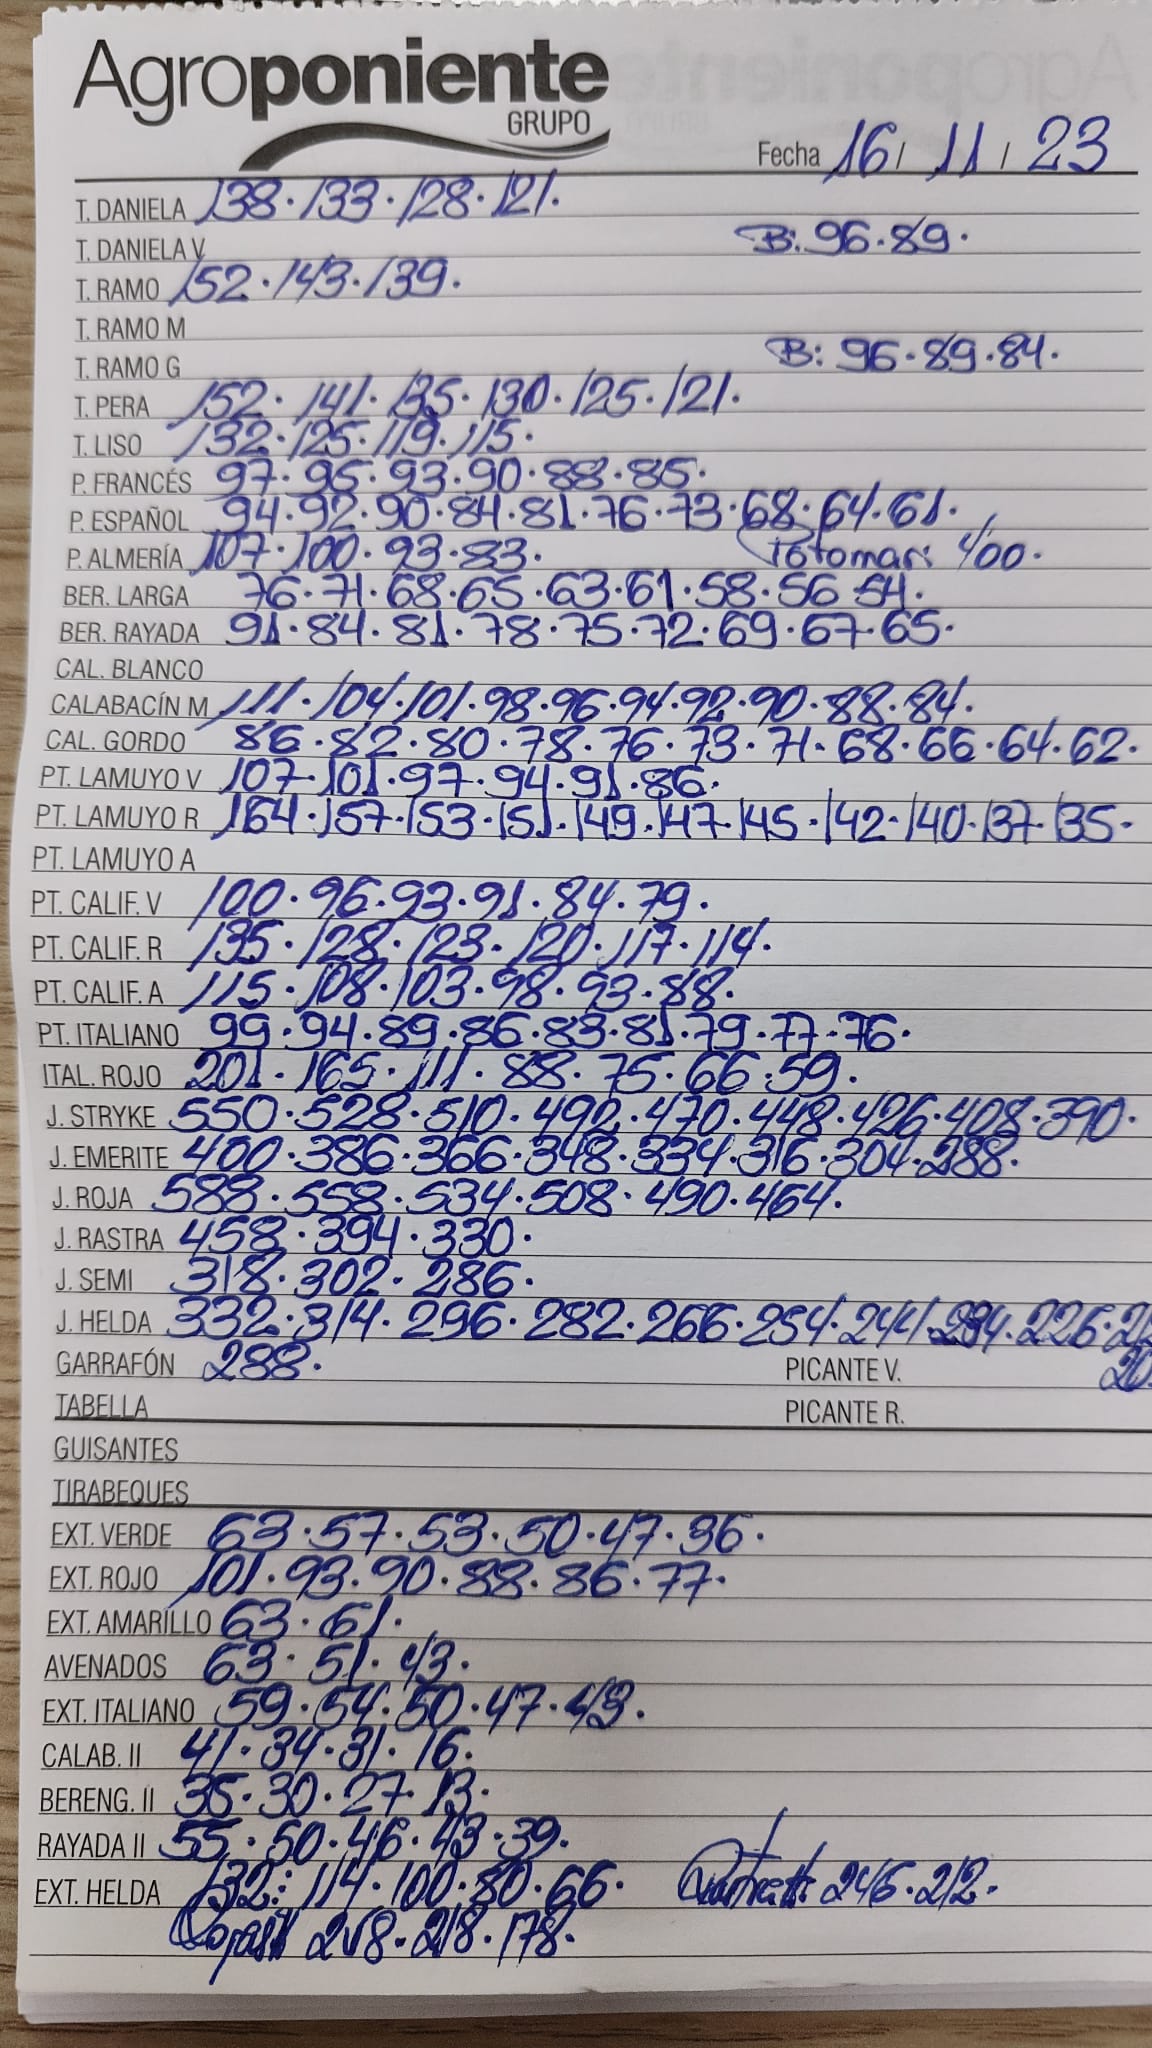 Agroponiente
GRUPO
Fecha 16 / 11 / 23
T. DANIELA 138 · 133 · 128 · 121.
T. DANIELA V B: 96 · 89 ·
T. RAMO 152 · 143 · 139.
T. RAMO M
T. RAMO G B: 96 · 89 · 84 ·
T. PERA 152 · 141 · 135 · 130 · 125 · 121.
T. LISO 132 · 125 · 119 · 115 ·
P. FRANCÉS 97 · 95 · 93 · 90 · 88 · 85 ·
P. ESPAÑOL 94 · 92 · 90 · 84 · 81 · 76 · 73 · 68 · 64 · 61 ·
P. ALMERÍA 107 · 100 · 93 · 83 · 400 ·
BER. LARGA 76 · 71 · 68 · 65 · 63 · 61 · 58 · 56 54 ·
BER. RAYADA 91 · 84 · 81 · 78 · 75 · 72 · 69 · 67 · 65 ·
CAL. BLANCO
CALABACÍN M 111 · 104 · 101 · 98 · 96 · 94 · 92 · 90 · 88 · 84 ·
CAL. GORDO 86 · 82 · 80 · 78 · 76 · 73 · 71 · 68 · 66 · 64 · 62 ·
PT. LAMUYO V 107 · 101 · 97 · 94 · 91 · 86 ·
PT. LAMUYO R 164 · 157 · 153 · 151 · 149 · 147 · 145 · 142 · 140 · 137 · 135 ·
PT. LAMUYO A
PT. CALIF. V 100 · 96 · 93 · 91 · 84 · 79 ·
PT. CALIF. R 135 · 128 · 123 · 120 · 117 · 114 ·
PT. CALIF. A 115 · 108 · 103 · 98 · 93 · 88 ·
PT. ITALIANO 99 · 94 · 89 · 86 · 83 · 81 · 79 · 77 · 76 ·
ITAL. ROJO 201 · 165 · 111 · 88 · 75 · 66 · 59 ·
J. STRYKE 550 · 528 · 510 · 492 · 470 · 448 · 426 · 408 · 390 ·
J. EMERITE 400 · 386 · 366 · 348 · 334 · 316 · 304 · 288 ·
J. ROJA 588 · 558 · 534 · 508 · 490 · 464 ·
J. RASTRA 458 · 394 · 330 ·
J. SEMI 318 · 302 · 286 ·
J. HELDA 332 · 314 · 296 · 282 · 266 · 254 · 244 · 234 · 226 ·
GARRAFÓN 288 · PICANTE V.
TABELLA PICANTE R.
GUISANTES
TIRABEQUES
EXT. VERDE 63 · 57 · 53 · 50 · 47 · 36 ·
EXT. ROJO 101 · 93 · 90 · 88 · 86 · 77 ·
EXT. AMARILLO 63 · 61 ·
AVENADOS 63 · 51 · 43 ·
EXT. ITALIANO 59 · 54 · 50 · 47 · 43 ·
CALAB. II 41 · 34 · 31 · 16 ·
BERENG. II 35 · 30 · 27 · 13 ·
RAYADA II 55 · 50 · 46 · 43 · 39 ·
EXT. HELDA 132 · 114 · 100 · 80 · 66 · 246 · 212 ·
218 · 178 ·